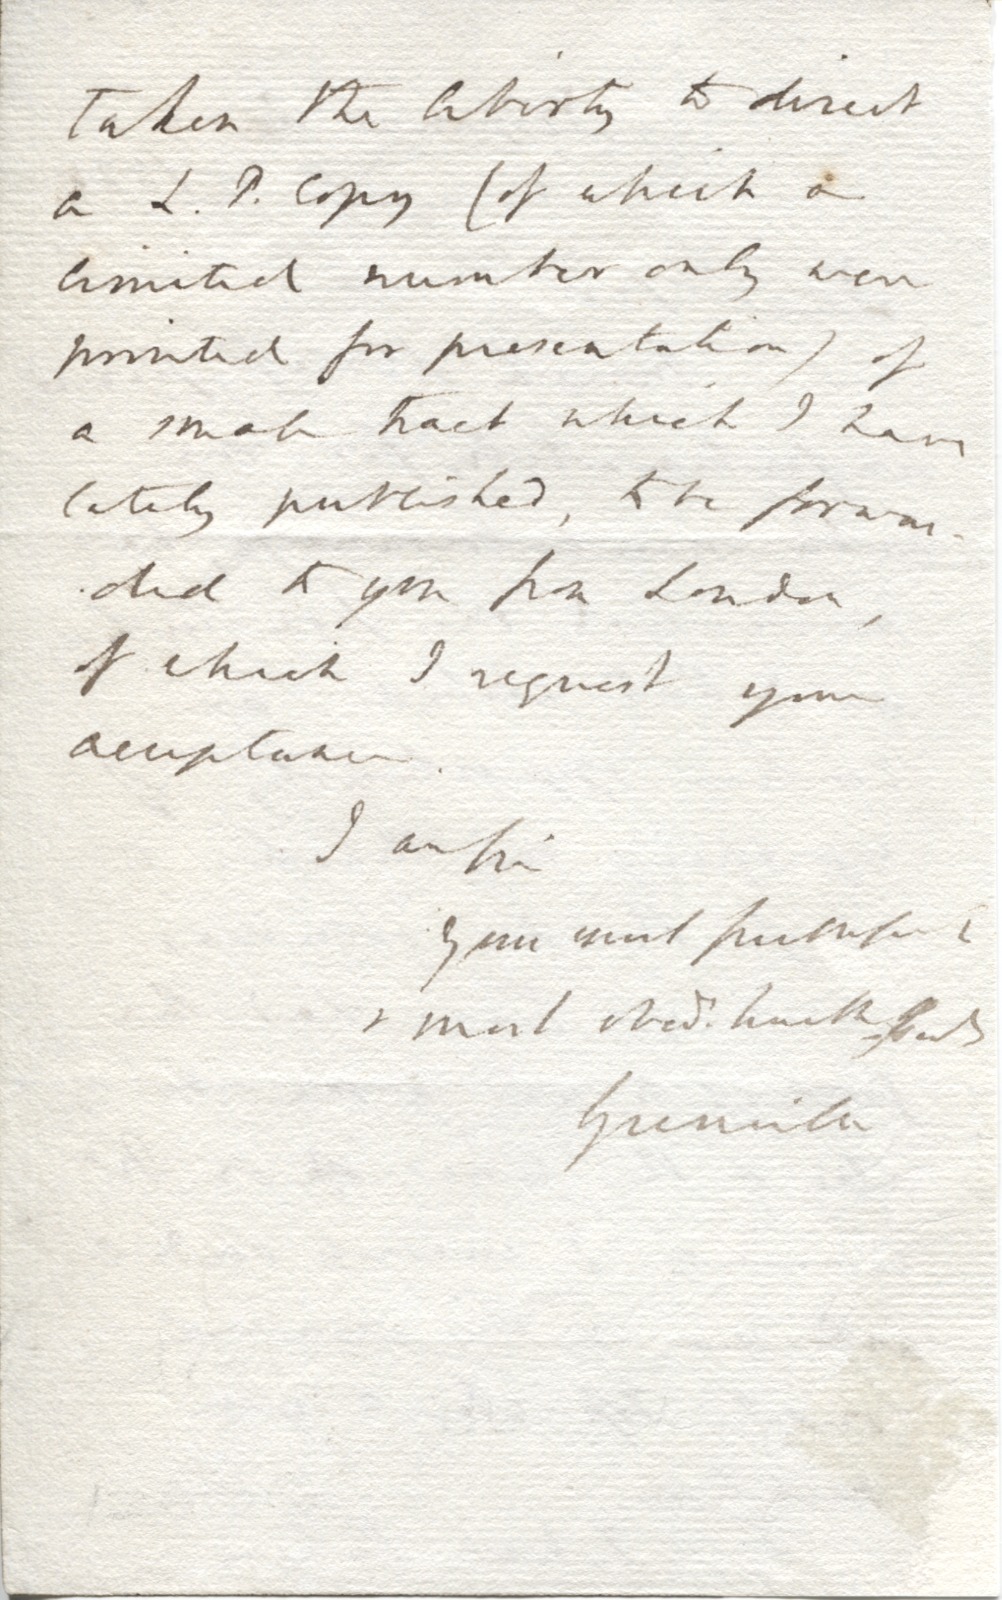 taken the liberty to direct
a L. P. Copy (of which a
limited number only were
printed for presentation) of
a small tract which I have
lately published, to be forwar-
ded to you from London,
of which I request your
acceptance.
I am Sir
your most faithful
& most obedt. humble Servt
Grenville